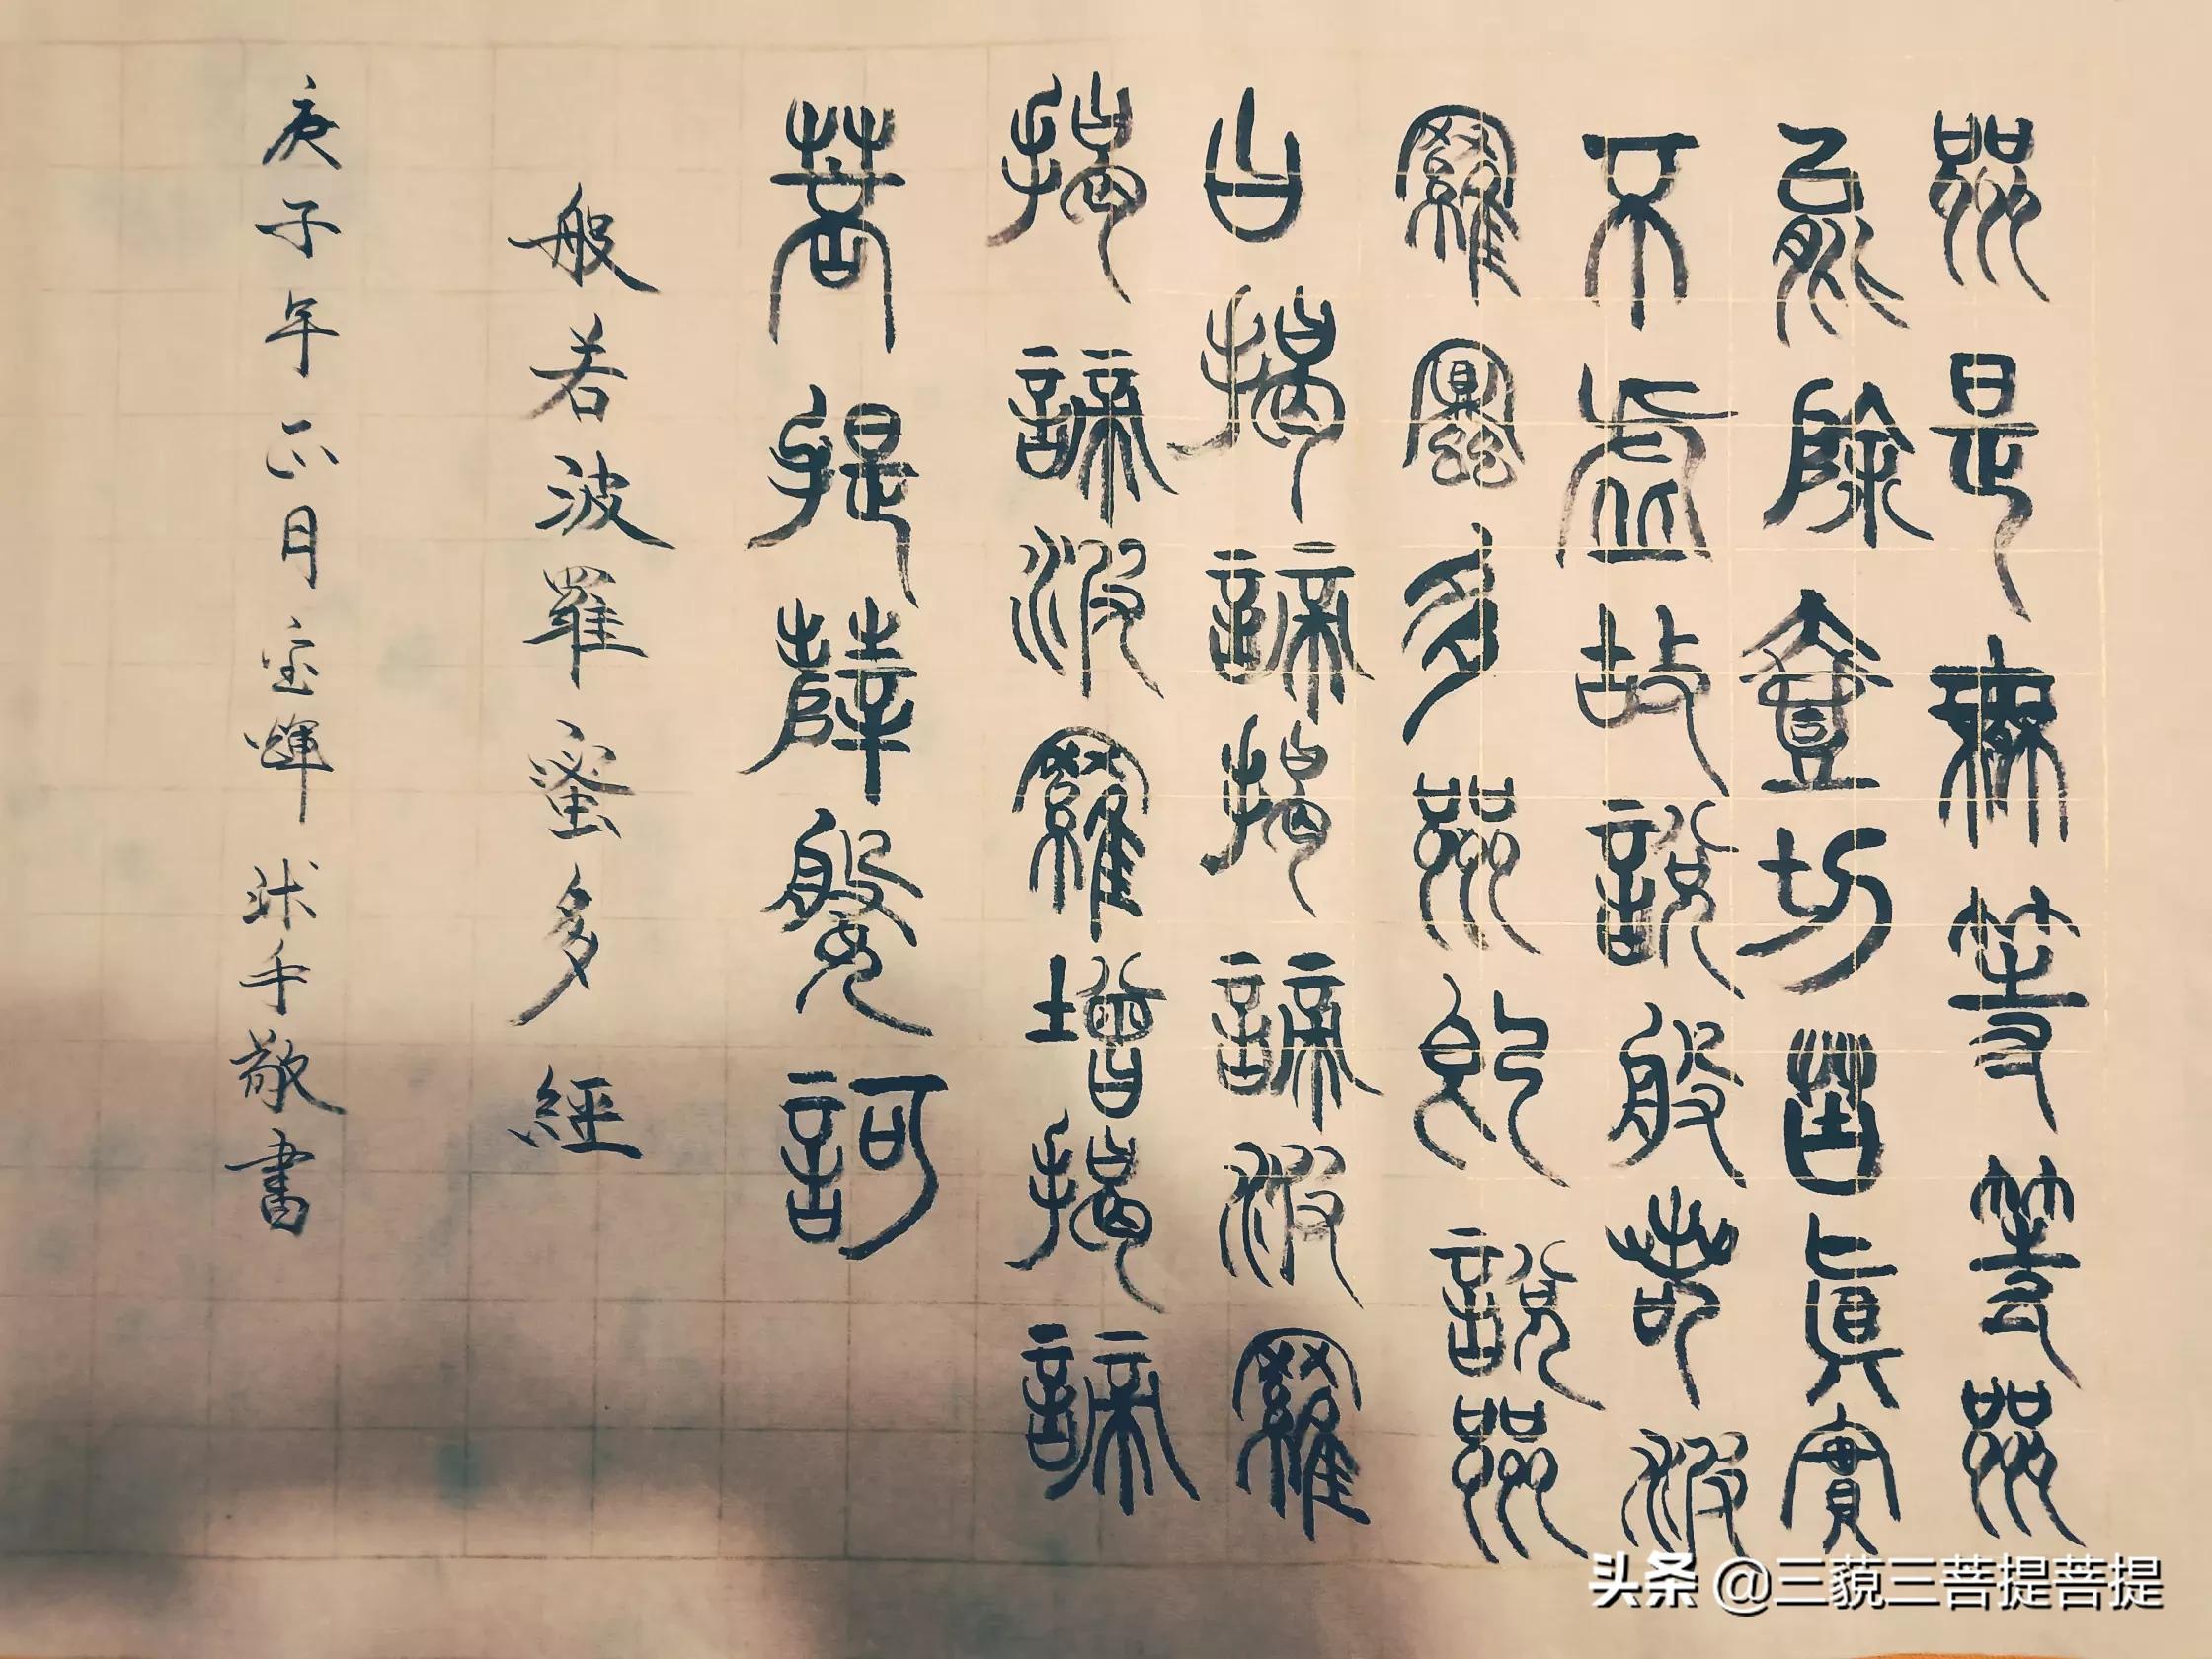 咒是無等等咒
能除壹切苦眞實
不虛故說般若波
羅蜜多咒即說咒
曰揭諦揭諦波羅
揭諦波羅增揭諦
菩提薩婆訶
般若波羅蜜多經
庚子年正月宝輝沐手敬書
头条 @三藐三菩提菩提